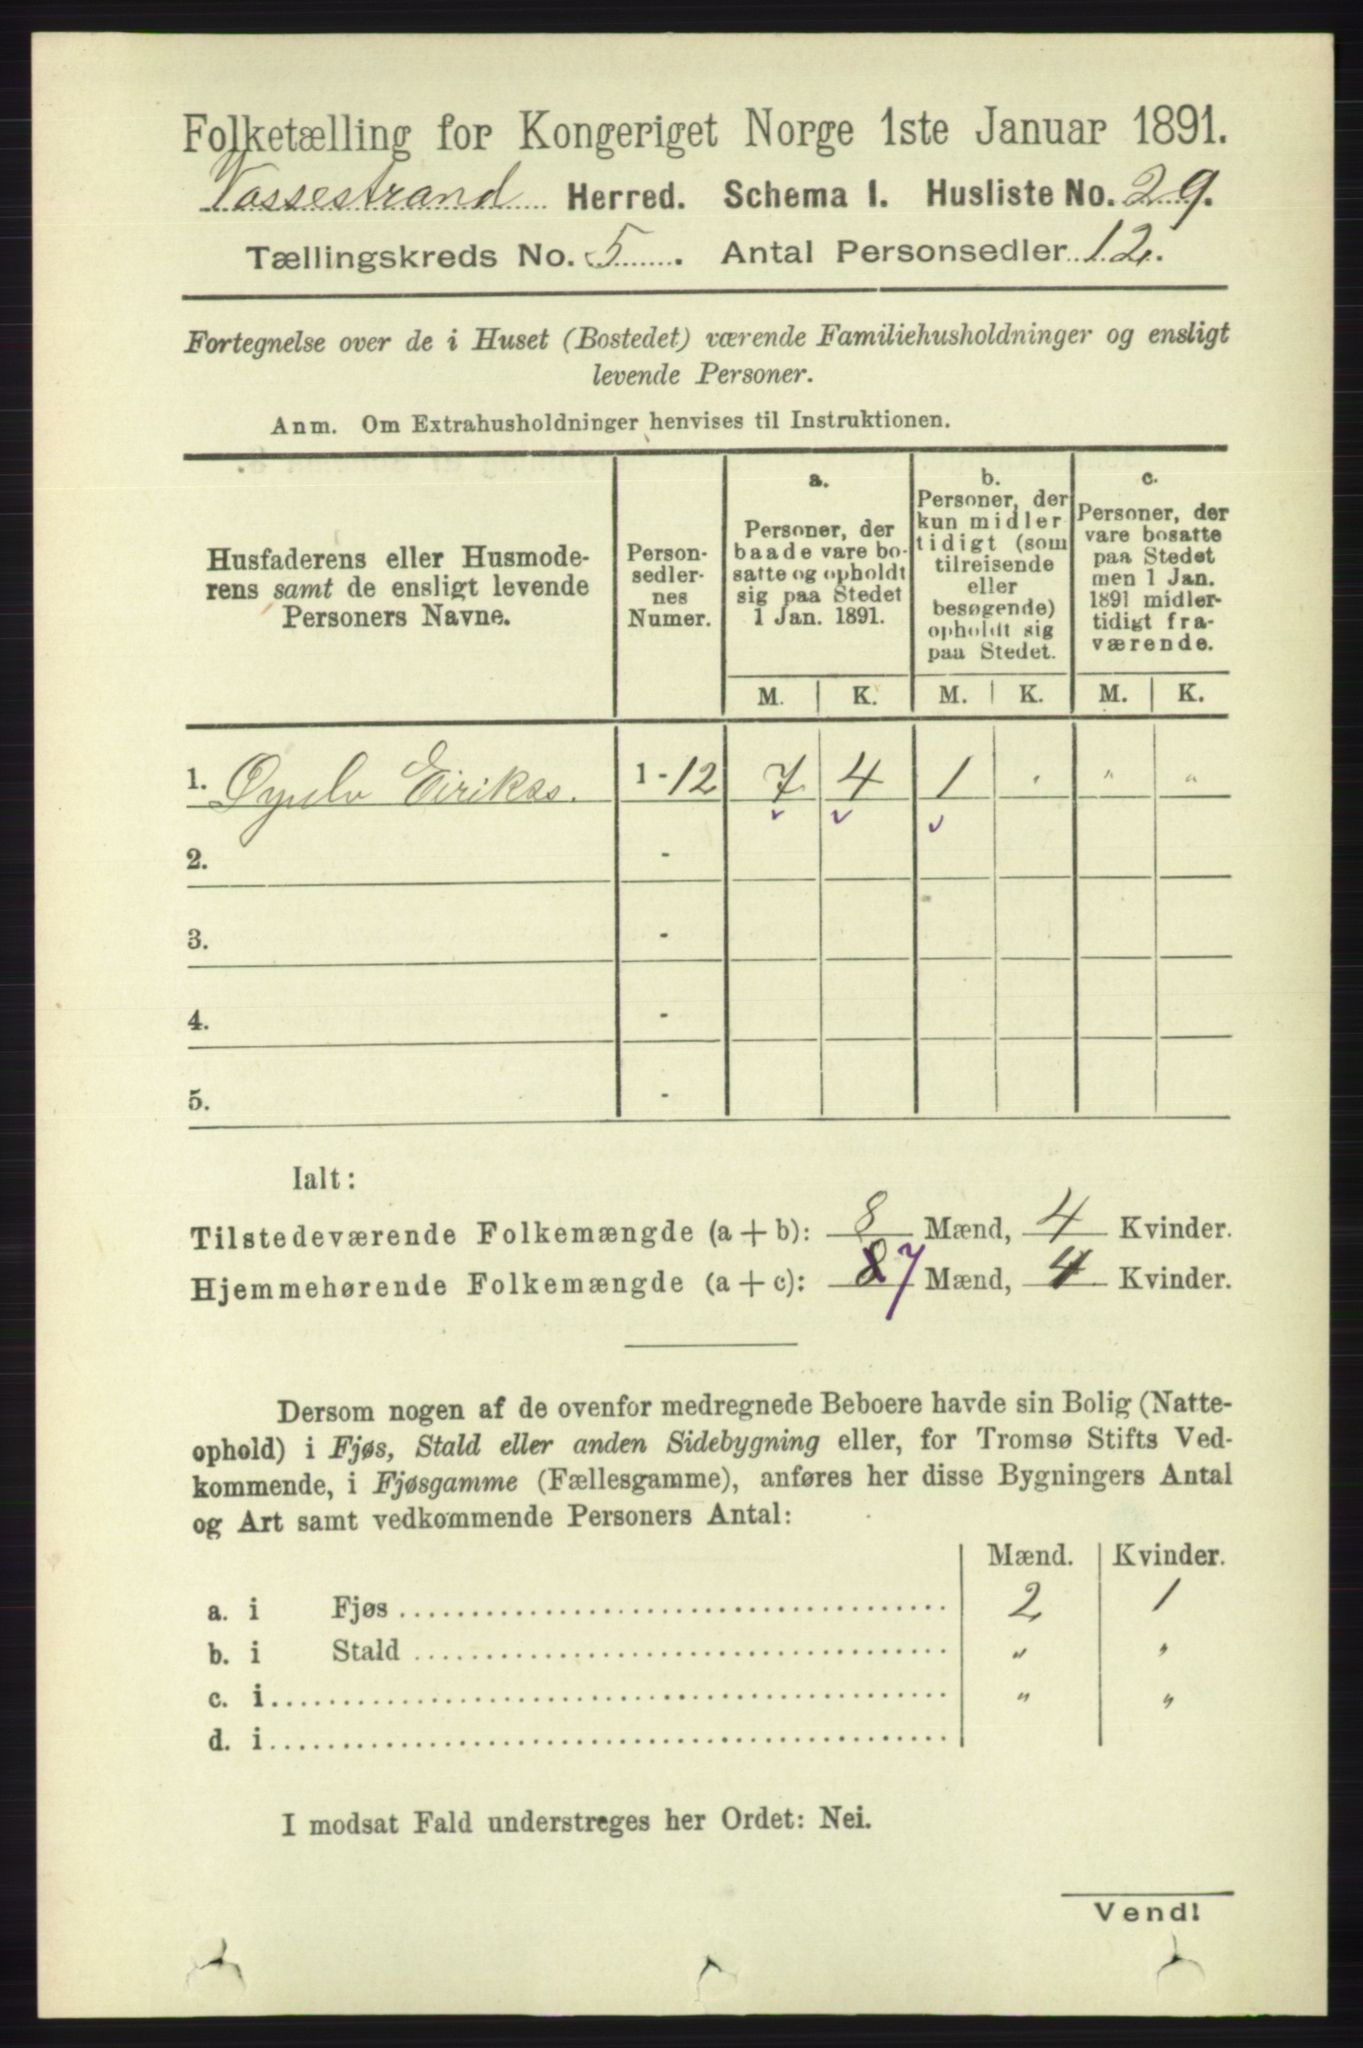 Folketælling for Kongeriget Norge 1ste Januar 1891.
Vossestrand Herred. Schema 1. Husliste No. 29.
Tællingskreds No. 5. Antal Personsedler 12.
Fortegnelse over de i Huset (Bostedet) værende Familiehusholdninger og ensligt
levende Personer.
Anm. Om Extrahusholdninger henvises til Instruktionen.
Husfaderens eller Husmode-
rens samt de ensligt levende
Personers Navne.
Person-
sedler-
nes
Numer.
a.
Personer, der
baade vare bo-
satte og opholdt
sig paa Stedet
1 Jan. 1891.
b.
Personer, der
kun midler
tidigt (som
tilreisende
eller
besøgende)
opholdt sig
paa Stedet.
c.
Personer, der
vare bosatte
paa Stedet
men 1 Jan.
1891 midler-
tidigt fra-
værende.
M. K. M. K. M. K.
1. Eirikss. 1-12 7 4 1 " " "
2. -
3. -
4. -
5. -
Ialt:
Tilstedeværende Folkemængde (a + b): 8 Mænd, 4 Kvinder.
Hjemmehørende Folkemængde (a + c): 8 7 Mænd, 4 Kvinder.
Dersom nogen af de ovenfor medregnede Beboere havde sin Bolig (Natte-
ophold) i Fjøs, Stald eller anden Sidebygning eller, for Tromsø Stifts Ved-
kommende, i Fjøsgamme (Fællesgamme), anføres her disse Bygningers Antal
og Art samt vedkommende Personers Antal:
Mænd. Kvinder.
a. i Fjøs 2 1
b. i Stald " "
c. i " "
d. i
I modsat Fald understreges her Ordet: Nei.
Vend!